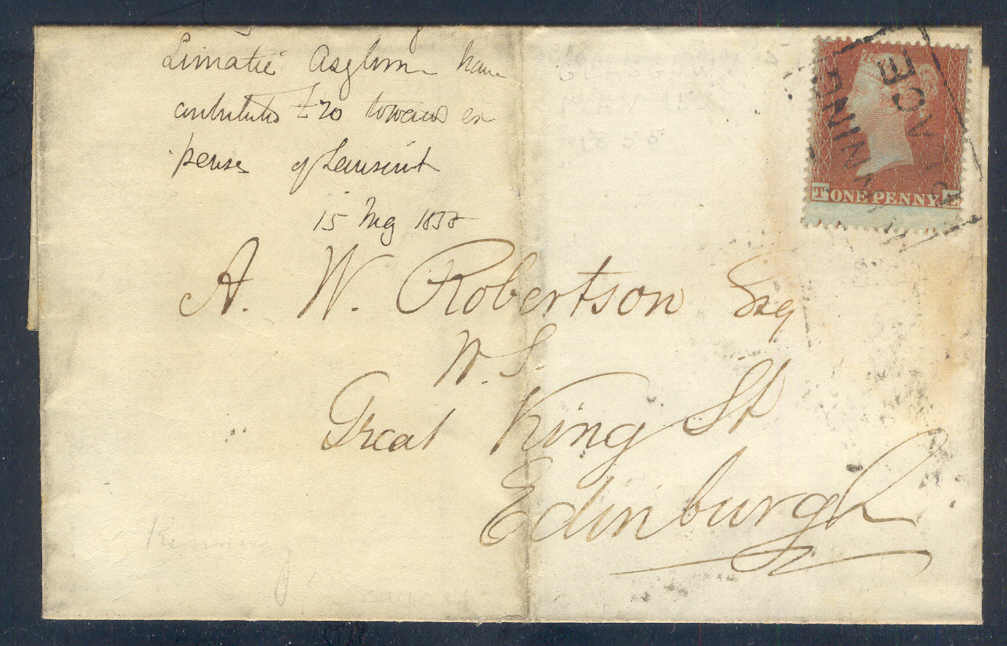 Lunatic Asylum have
contributed £20 towards ex
pense of Lawsuit
15 Aug 1858
A. W. Robertson Esq
W. S.
Great King St
Edinburgh
T ONE PENNY
ACE
NNING